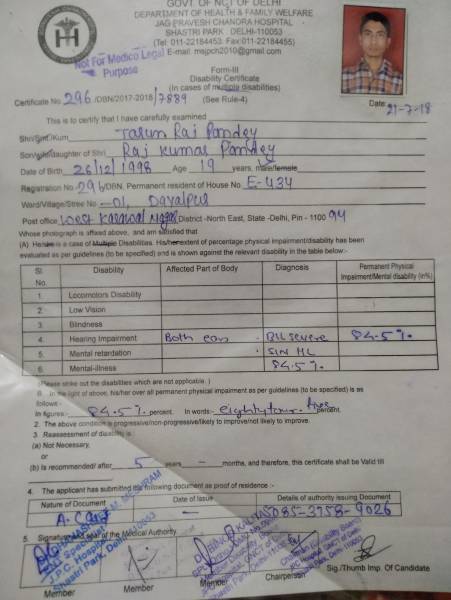 GOVT. OF NCT OF DELHI
DEPARTMENT OF HEALTH & FAMILY WELFARE
JAG PRAVESH CHANDRA HOSPITAL
SHASTRI PARK DELHI-110053
(Tel: 011-22184453, Fax:011-22184455)
E-mail: msjpch2010@gmail.com
Not For Medico Legal
Purpose
Form-III
Disability Certificate
(In cases of multiple disabilities)
Certificate No. 296/DBN/2017-2018/7889 (See Rule-4) Date 21-7-18
This is to certify that I have carefully examined
Shri/Smt./Kum Tarun Raj Pandey
Son/wife/daughter of Shri Raj Kumar Pandey
Date of Birth 26/12/1998 Age 19 years, male/female
Registration No. 296/DBN. Permanent resident of House No. E-434
Ward/Village/Stree No -01, Dayalpur
Post office West Karawal Nagar District -North East, State -Delhi, Pin - 1100 94
Whose photograph is affixed above, and am satisfied that
(A) He is a case of Multiple Disabilities. His/her extent of percentage physical impairment/disability has been
evaluated as per guidelines (to be specified) and is shown against the relevant disability in the table below:-
Sl. No. Disability Affected Part of Body Diagnosis Permanent Physical Impairment/Mental disability (in%)
1. Locomotors Disability
2. Low Vision
3. Blindness
4. Hearing Impairment Both ears - B/L severe 84.5%.
5. Mental retardation SN HL
6. Mental-illness 84.5%.
(Please strike out the disabilities which are not applicable.)
B. In the light of above, his/her over all permanent physical impairment as per guidelines (to be specified) is as
follows:-
In figures:- 84.5% percent. In words:- eighty four percent.
2. The above condition is progressive/non-progressive/likely to improve/not likely to improve.
3. Reassessment of disability is :
(a) Not Necessary,
or
(b) Is recommended/ after 5 years - months, and therefore, this certificate shall be Valid till
4. The applicant has submitted the following document as proof of residence :-
Nature of Document Date of Issue Details of authority issuing Document
A. Card - 5085-3758-9026
5. Signature and seal of the Medical Authority
J.P.C. Hospital
Shastri Park, Delhi-110053
Member Member Member Chairperson Sig./Thumb Imp. Of Candidate